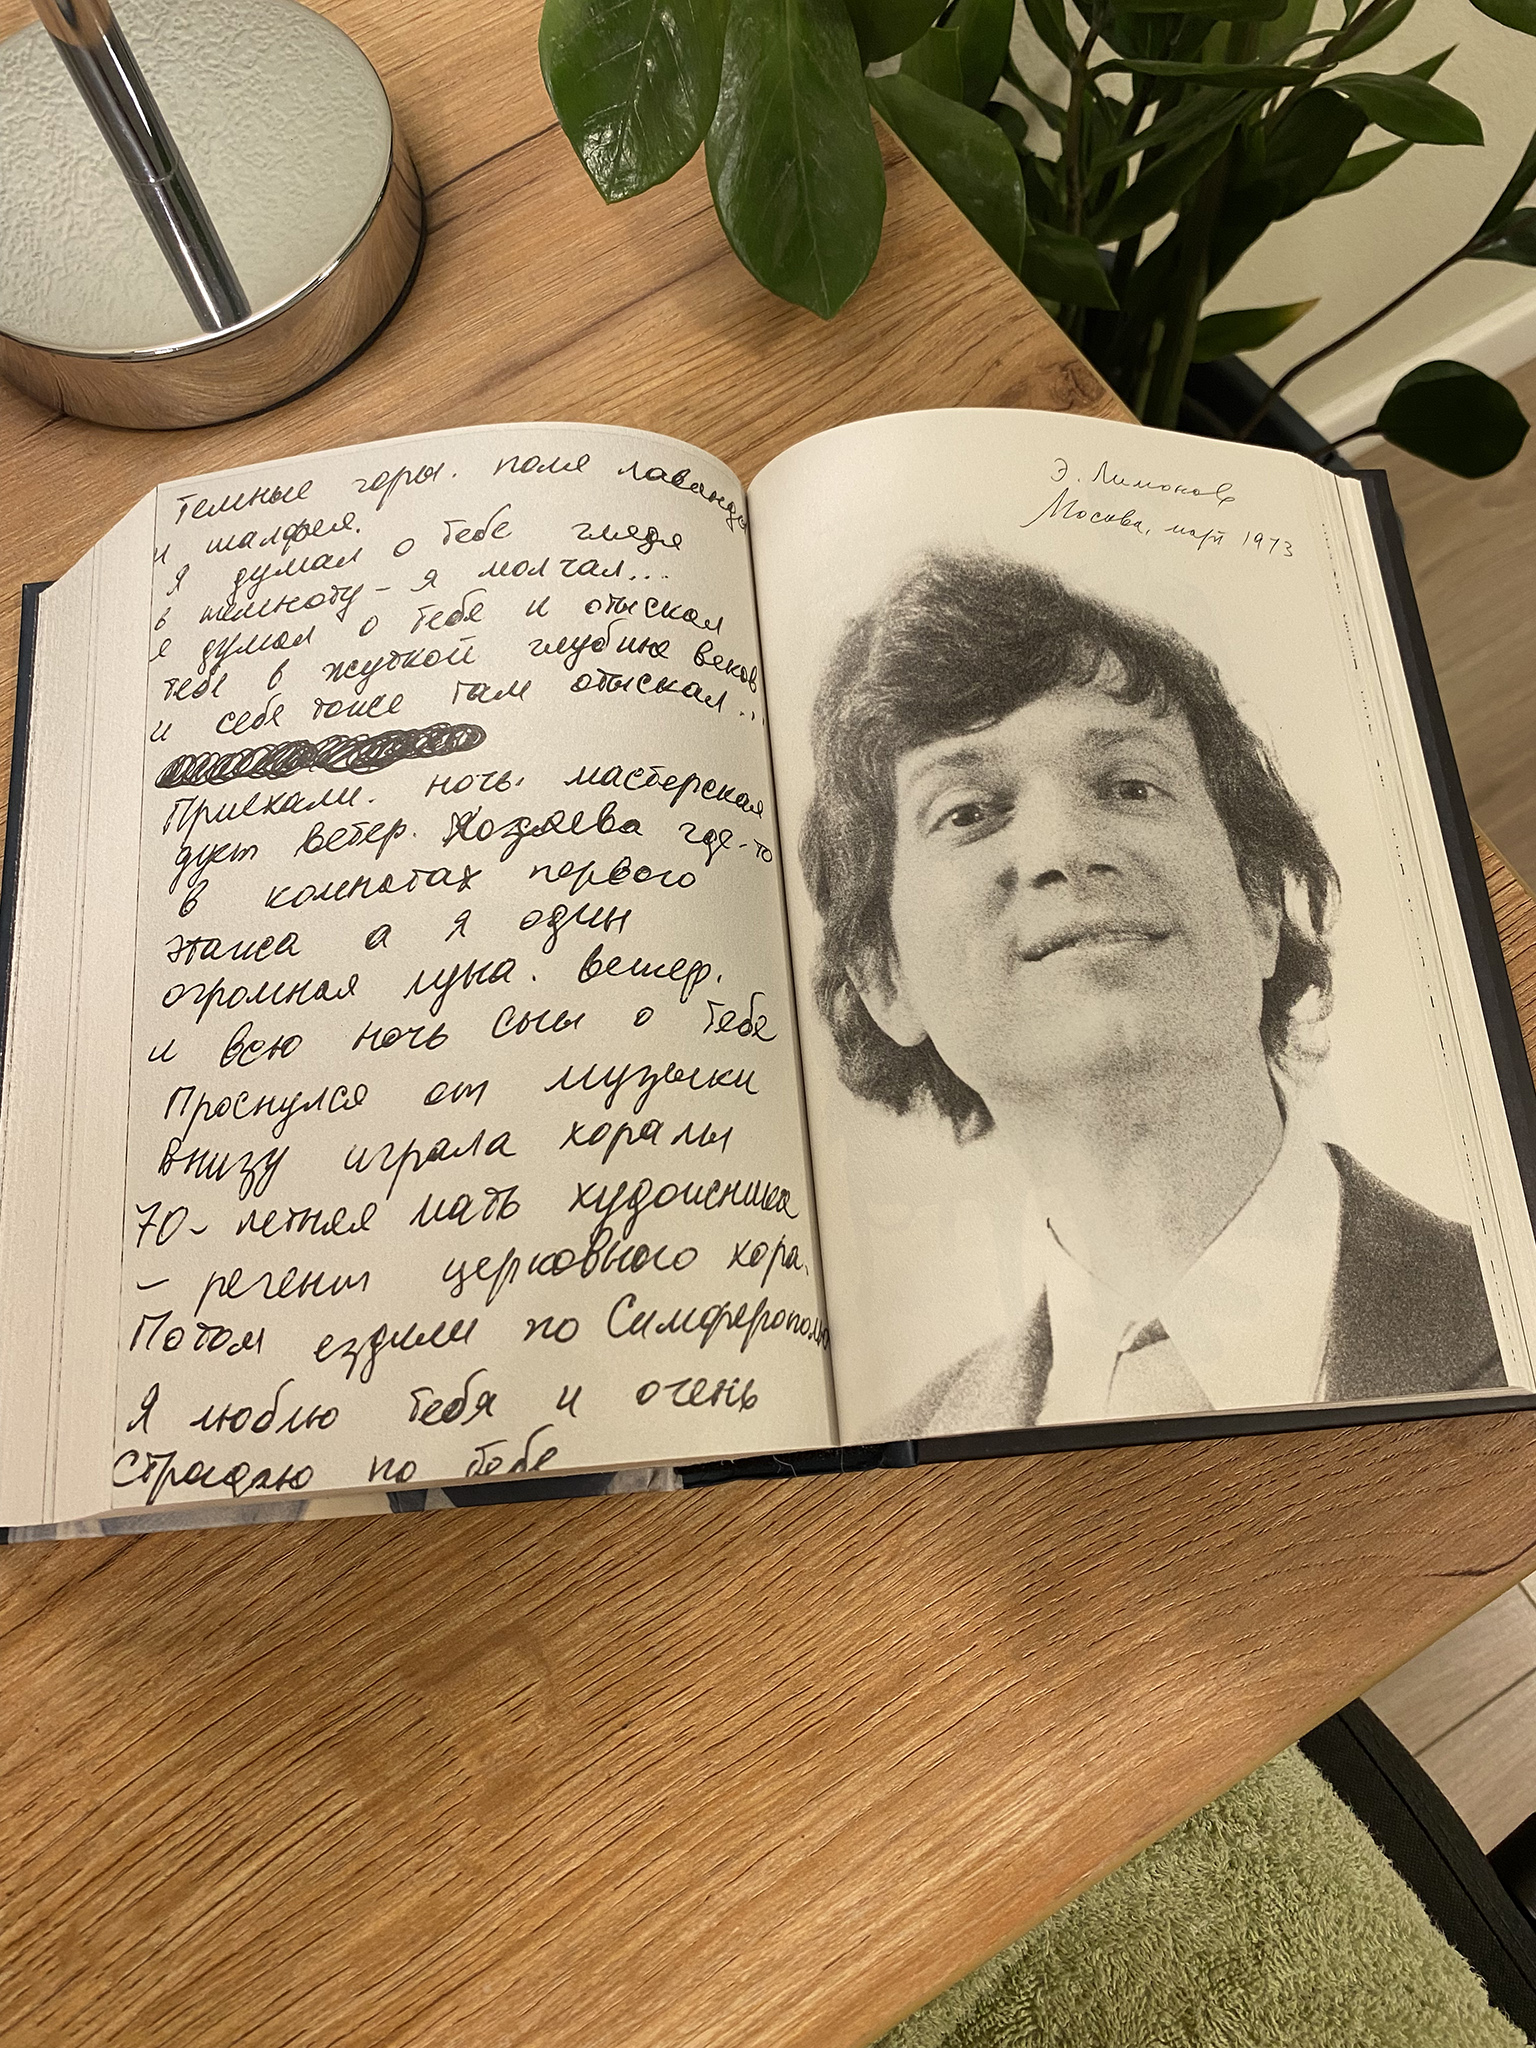 Темные горы. поля лаванды
и шалфея.
Я думал о тебе глядя
в темноту – я молчал...
я думал о тебе и отыскал
тебя в жуткой глубине веков
и себя тоже там отыскал...
Приехали. ночь. мастерская
дует ветер. Хозяева где-то
в комнатах первого
этажа а я один
огромная луна. ветер.
и всю ночь сны о тебе
Проснулся от музыки
внизу играла хоралы
70-летняя мать художника
– регент церковного хора.
Потом ездили по Симферополю
Я люблю тебя и очень
страдаю по тебе
Э. Лимонов
Москва, март 1973